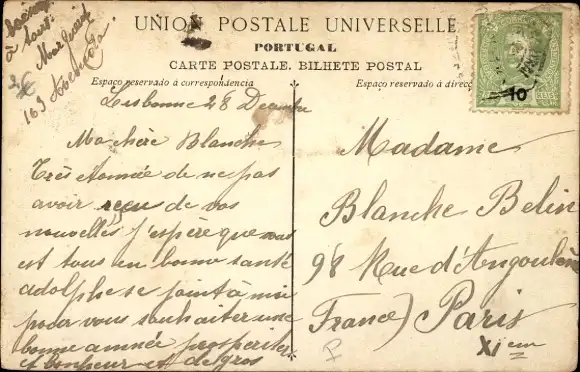 UNION POSTALE UNIVERSELLE
PORTUGAL
CARTE POSTALE. BILHETE POSTAL
Espaço reservado á correspondencia
Espaço reservado á direcç
10
Lisbonne 28 Decembre
Ma chère Blanche
Très étonnée de ne pas
avoir reçu de vos
nouvelles j'espère que vous
est tous en bonne santé
adolphe se joint à moi
pour vous souhaiter une
bonne année prospérité
et bonheur et de gros
baisers
à tous
Madame
Blanche Belin
98 Rue d'Angoulême
France) Paris
XIem
169